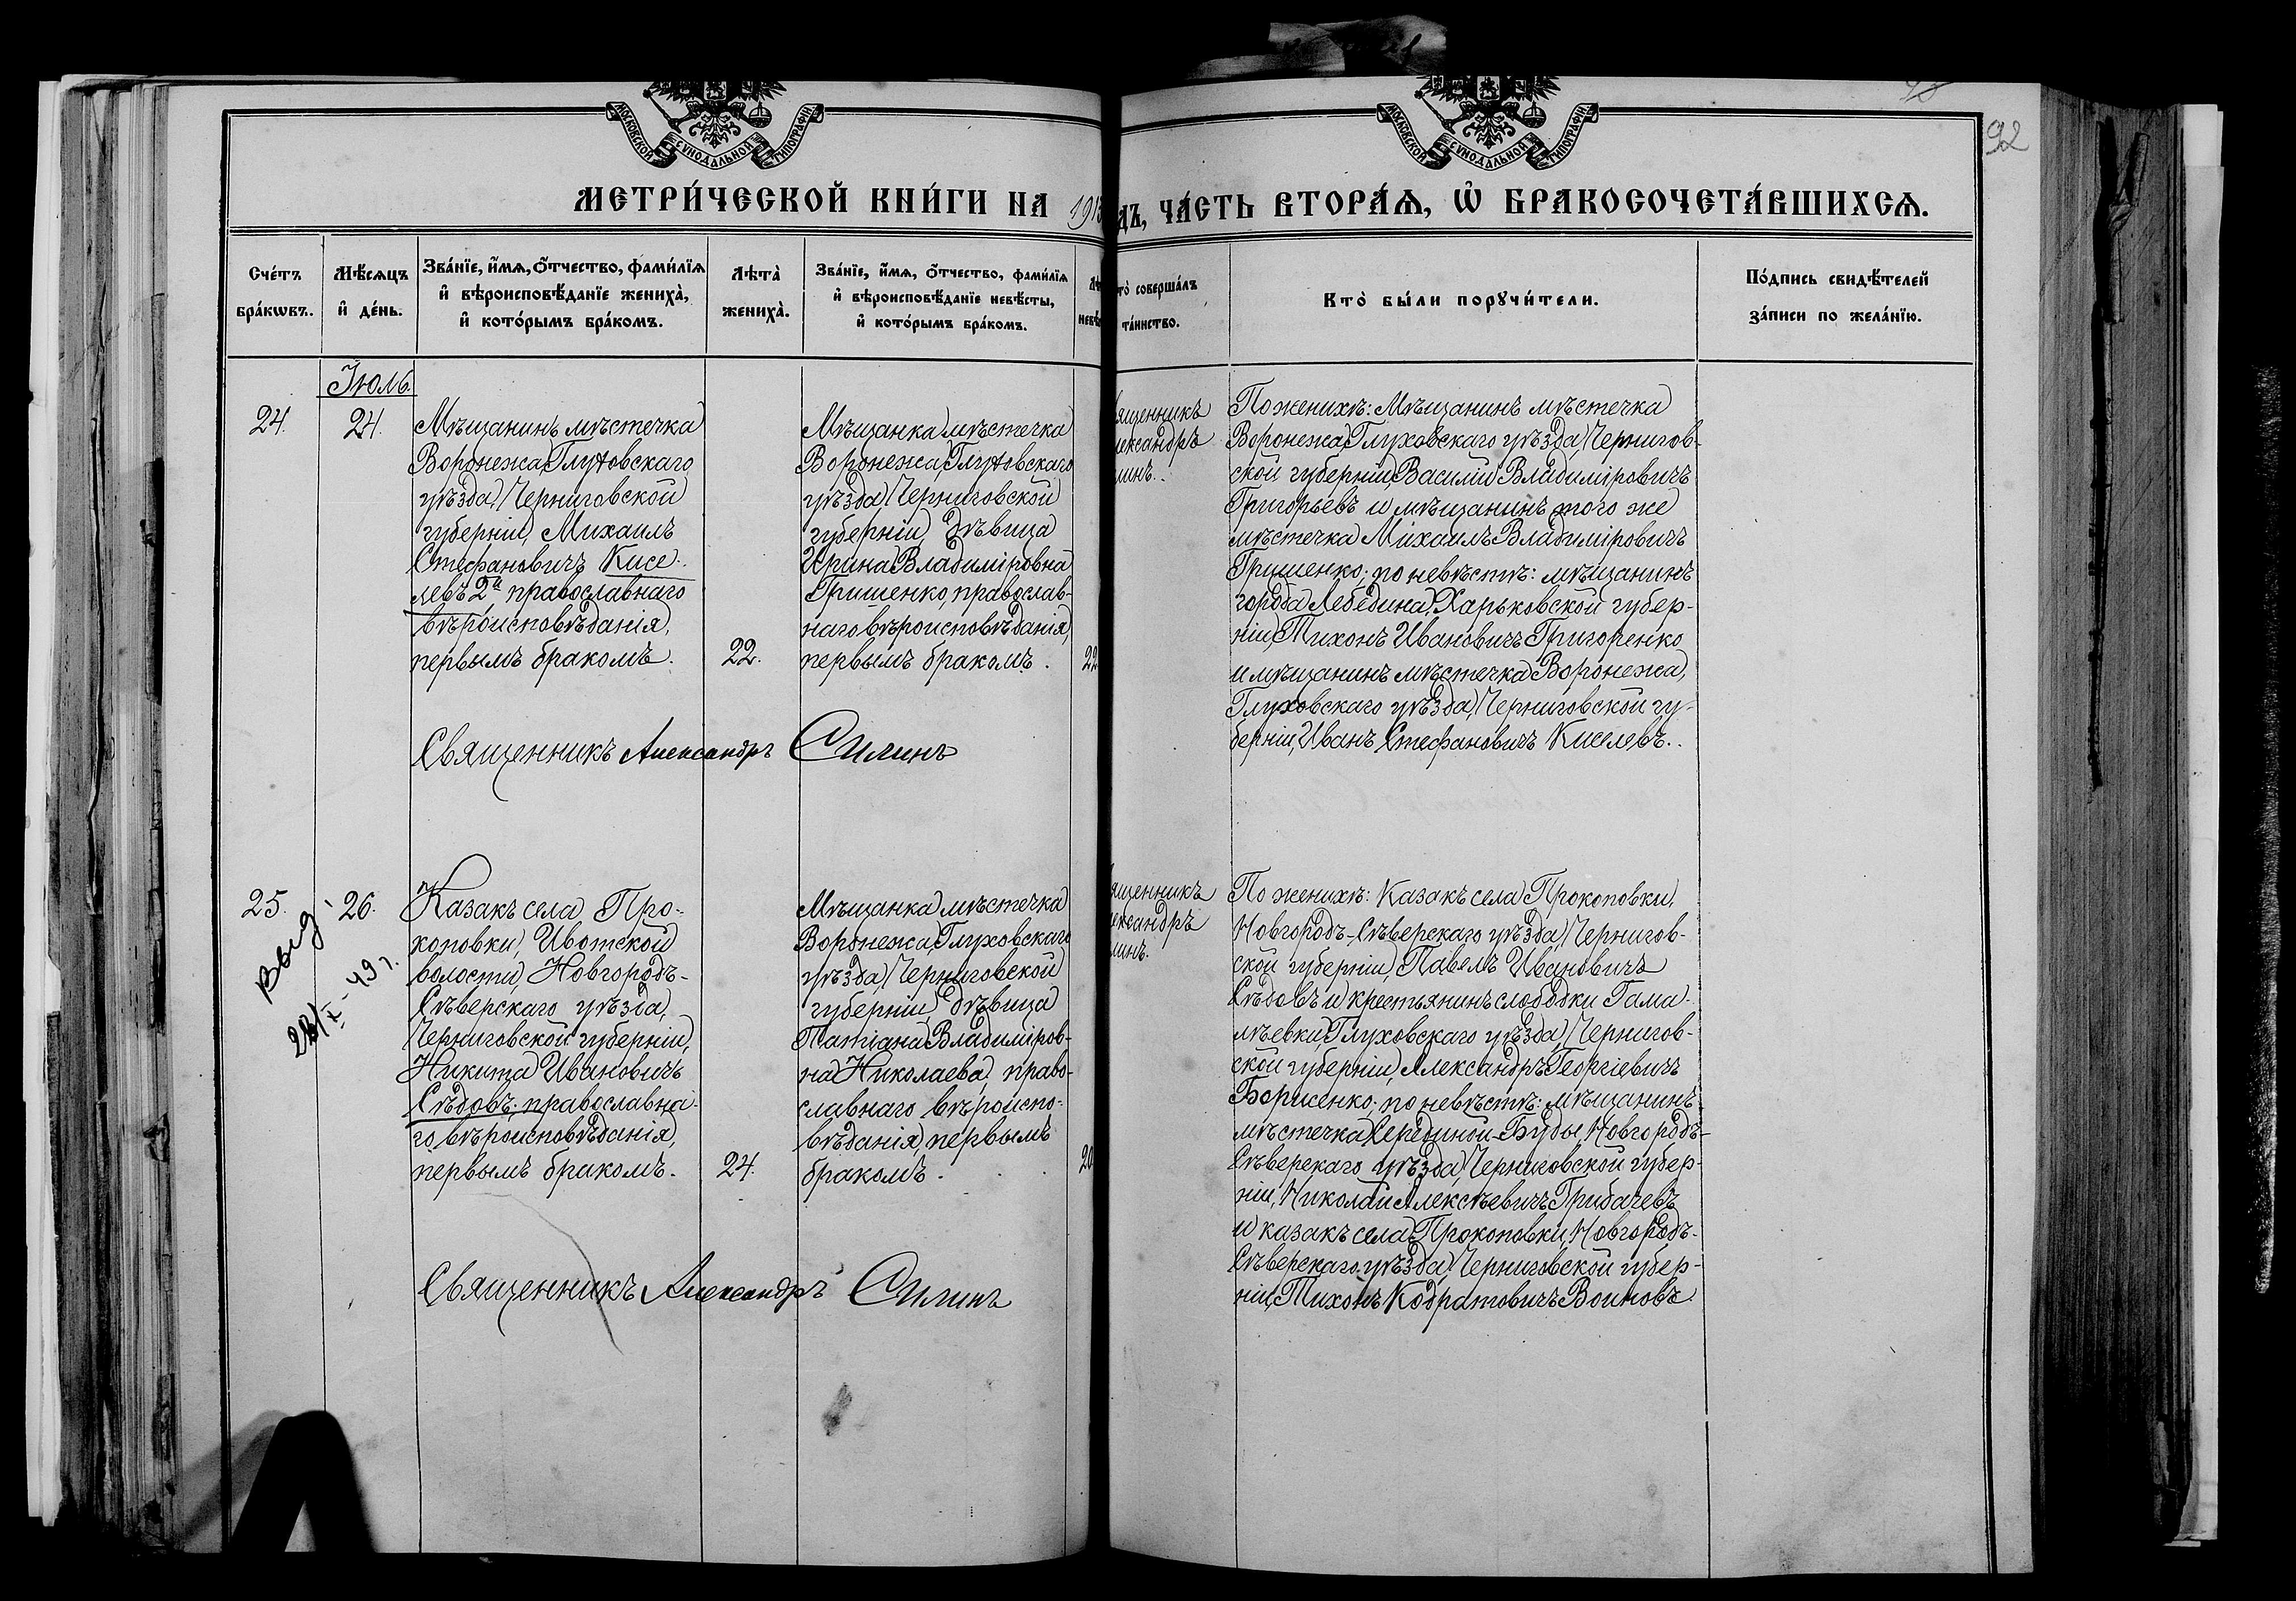 92
МОСКОВСКОЙ СѴНОДАЛЬНОЙ ТИПОГРАФІИ
МОСКОВСКОЙ СѴНОДАЛЬНОЙ ТИПОГРАФІИ
МЕТРИ́ЧЕСКОЙ КНИ́ГИ НА 191
ДЪ, ЧА́СТЬ ВТОРА́Ѧ, Ѡ҆ БРАКОСОЧЕТА́ВШИХСѦ.
Сче́тъ
бра́кѡвъ.
Мѣ́сѧцъ
и҆ де́нь.
Зва́нїе, и҆́мѧ, ѻ҆́тчество, фами́лїѧ
и҆ вѣроисповѣ́данїе жениха̀,
и҆ кото́рымъ бра́комъ.
Лѣта̀
жениха̀.
Зва́нїе, и҆́мѧ, ѻ҆́тчество, фами́лїѧ
и҆ вѣроисповѣ́данїе невѣ́сты,
и҆ кото́рымъ бра́комъ.
Лѣ
невѣ
то̀ соверша́лъ
та́инство.
Кто̀ бы́ли порꙋчи́тели.
По́дпись свидѣ́телей
за́писи по жела́нїю.
Іюль.
24.
24.
Мѣщанинъ мѣстечка
Воронежа, Глуховскаго
уѣзда, Черниговской
губерніи, Михаилъ
Стефановичъ Кисе-
левъ 2й православнаго
вѣроисповѣданія,
первымъ бракомъ.
22.
Мѣщанка мѣстечка
Воронежа, Глуховскаго
уѣзда, Черниговской
губерніи, дѣвица
Ирина Владиміровна
Гришенко, православ-
наго вѣроисповѣданія,
первымъ бракомъ.
22
ященникъ
лександръ
линъ.
По женихѣ: Мѣщанинъ мѣстечка
Воронежа, Глуховскаго уѣзда, Чернигов-
ской губерніи Василій Владиміровичъ
Григорьевъ и мѣщанинъ того же
мѣстечка Михаилъ Владиміровичъ
Гришенко; по невѣстѣ: мѣщанинъ
города Лебедина, Харьковской губер-
ніи, Тихонъ Ивановичъ Григоренко
и мѣщанинъ мѣстечка Воронежа,
Глуховскаго уѣзда, Черниговской гу-
берніи, Иванъ Стефановичъ Киселевъ.
Священникъ Александръ Силинъ
25.
26.
Выд.
28/X-49 г.
Казакъ села Про-
коповки, Ивотской
волости, Новгородъ-
Сѣверскаго уѣзда,
Черниговской губерніи,
Никита Ивановичъ
Сѣдовъ; православна-
го вѣроисповѣданія,
первымъ бракомъ.
24.
Мѣщанка мѣстечка
Воронежа, Глуховскаго
уѣзда, Черниговской
губерніи, дѣвица
Татіана Владиміров-
на Николаева, право-
славнаго вѣроиспо-
вѣданія, первымъ
бракомъ.
20
ященникъ
ександръ
линъ.
По женихѣ: Казакъ села Прокоповки,
Новгородъ-Сѣверскаго уѣзда, Чернигов-
ской губерніи, Павелъ Ивановичъ
Сѣдовъ и крестьянинъ слободки Гама-
лѣевки, Глуховскаго уѣзда, Чернигов-
ской губерніи, Александръ Георгіевичъ
Борисенко; по невѣстѣ: мѣщанинъ
мѣстечка Середино-Буды, Новгородъ-
Сѣверскаго уѣзда, Черниговской губер-
ніи, Николай Алексѣевичъ Грибачевъ
и казакъ села Прокоповки, Новгородъ-
Сѣверскаго уѣзда, Черниговской губер-
ніи, Тихонъ Кодратовичъ Воиновъ.
Священникъ Александръ Силинъ